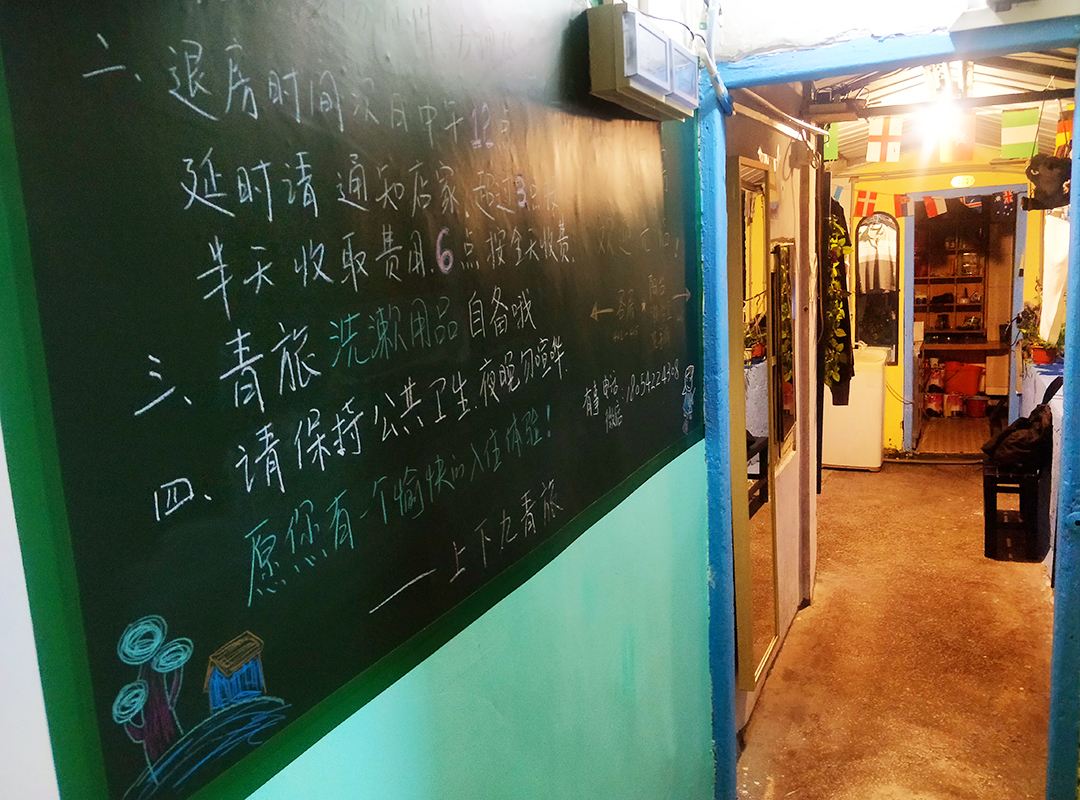 二、退房时间次日中午12点
延时请通知店家,超过3点按
半天收取费用.6点按全天收费.
三、青旅洗漱用品自备哦
四、请保持公共卫生.夜晚勿喧哗.
愿你有一个愉快的入住体验!
——上下九青旅
有事电话
微信